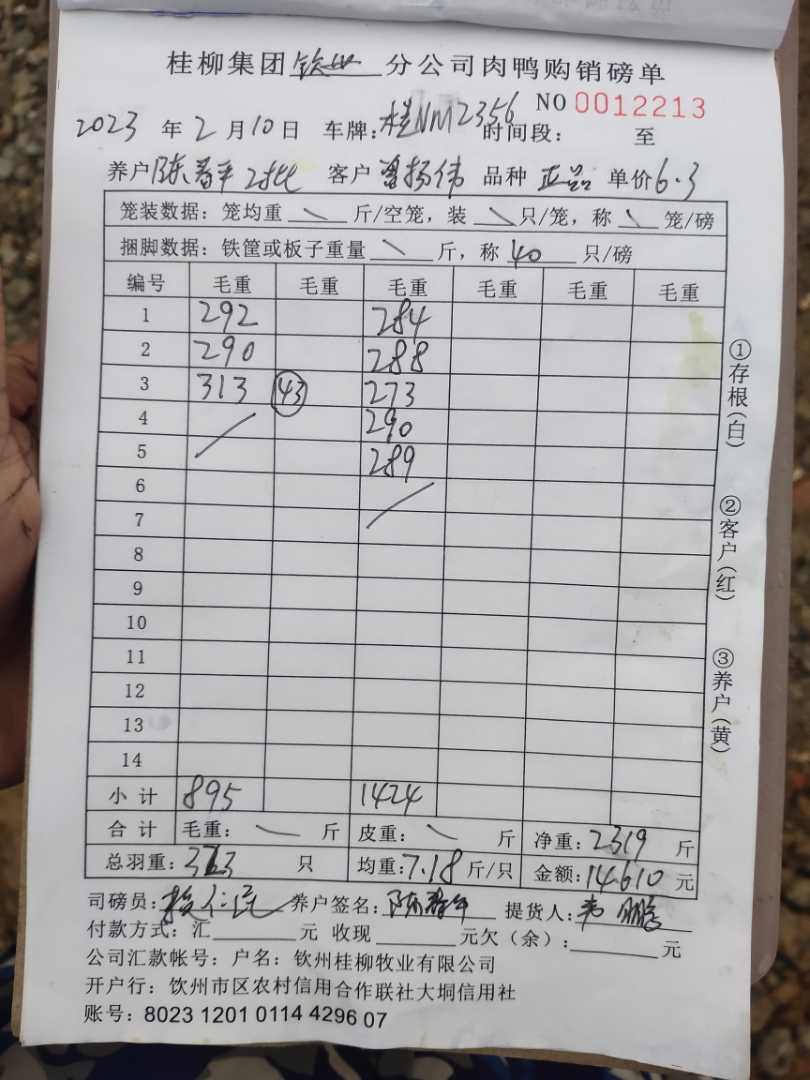 桂柳集团钦州分公司肉鸭购销磅单
NO 0012213
2023年2月10日 车牌:桂NM2356 时间段: 至
养户 陈春平 客户 曾扬伟 品种 正品 单价6.3
笼装数据：笼均重 \ 斤/空笼，装 \ 只/笼，称 \ 笼/磅
捆脚数据：铁筐或板子重量 \ 斤，称 40 只/磅
编号 毛重 毛重 毛重 毛重 毛重 毛重
1 292 284
2 290 288
3 313 43 273
4 290
5 289
6
7
8
9
10
11
12
13
14
小计 895 1424
合计 毛重： — 斤 皮重： \ 斤 净重：2319 斤
总羽重：323 只 均重：7.18 斤/只 金额：14610 元
司磅员： 养户签名：陈春平 提货人：韦鹏
付款方式：汇 元 收现 元欠（余）： 元
公司汇款帐号：户名：钦州桂柳牧业有限公司
开户行：饮州市区农村信用合作联社大垌信用社
账号：8023 1201 0114 4296 07
①存根(白)
②客户(红)
③养户(黄)